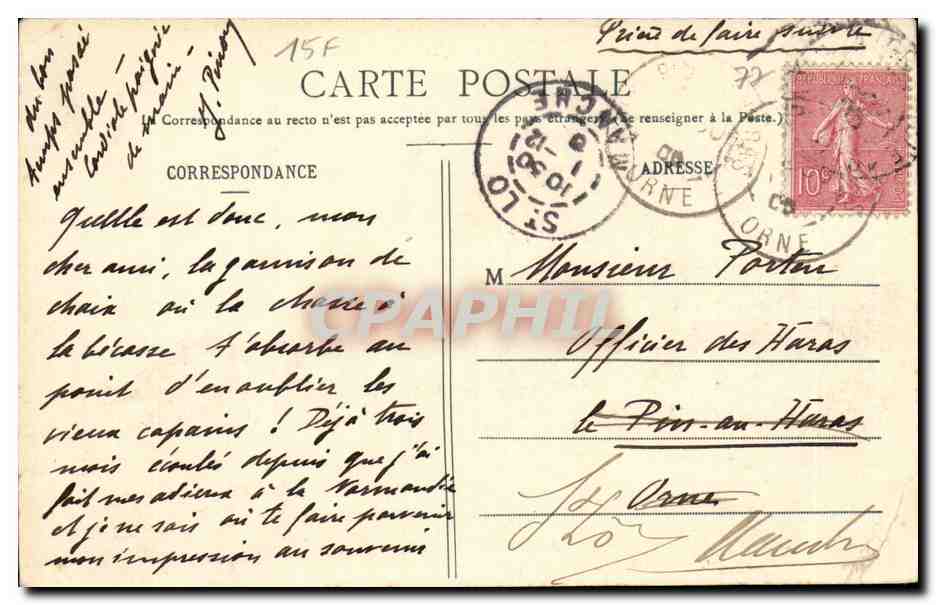 15F
Prière de faire suivre
CARTE POSTALE
(La Correspondance au recto n'est pas acceptée par tous les pays étrangers. Se renseigner à la Poste.)
CORRESPONDANCE
ADRESSE
REPUBLIQUE FRANÇAISE
10c
ST LO
MANCHE
10 50
ORNE
ORNE
72
Quelle est donc, mon
cher ami, la garnison de
choix où la chasse à
la bécasse t'absorbe au
point d'en oublier les
vieux copains ! Déjà trois
mois écoulés depuis que j'ai
fait mes adieux à la Normandie
et je ne sais où te faire parvenir
mon impression au souvenir
du bon
temps passé
ensemble –
Cordiale poignée
de main –
Pinson
M Monsieur Porteu
Officier des Haras
le Pin-au-Haras
Orne
St Lô
Manche
CPAPHIL